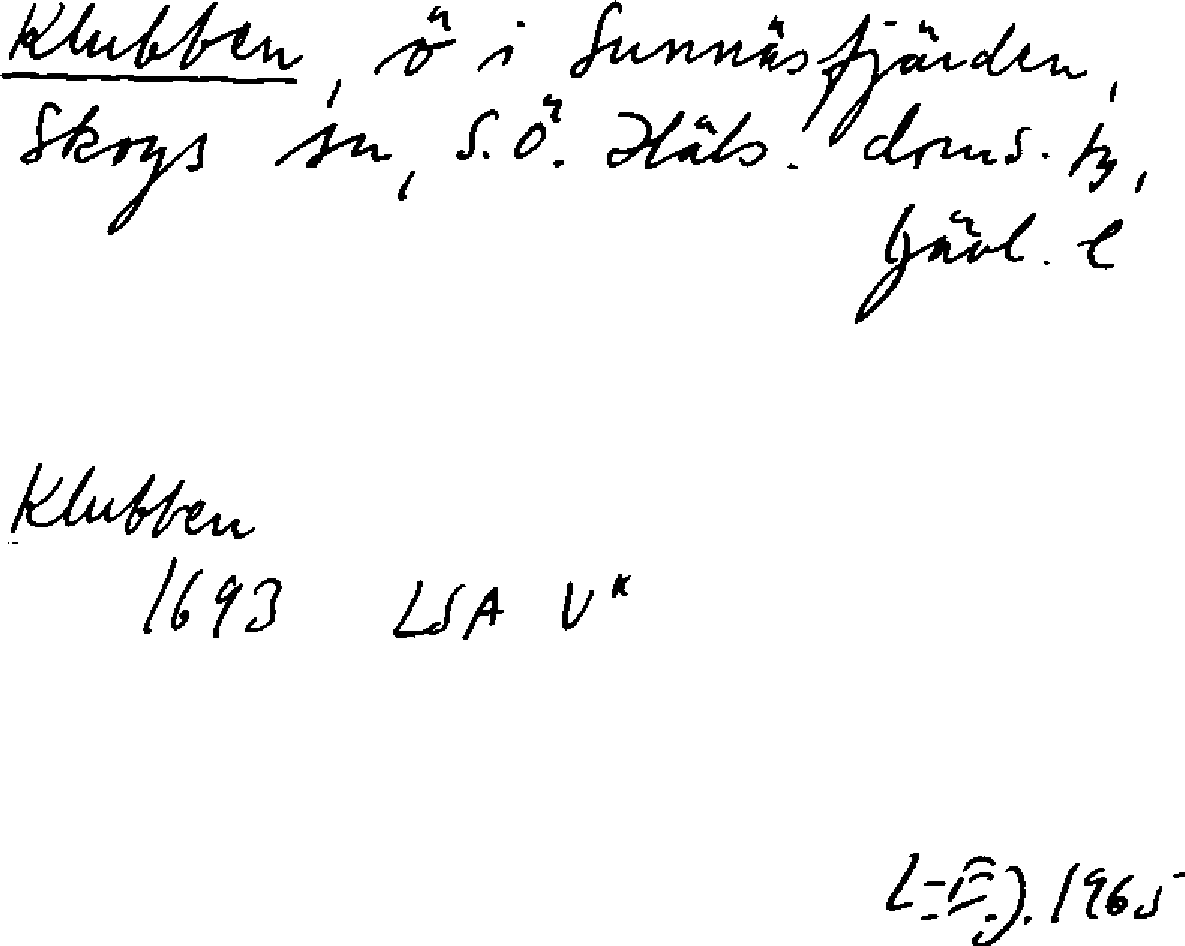 Klubben, ö i Sunnäsfjärden,
Skogs sn, S.Ö. Häls. doms. tg,
Gävl. l
Klubben
1693 LSA V K
1965